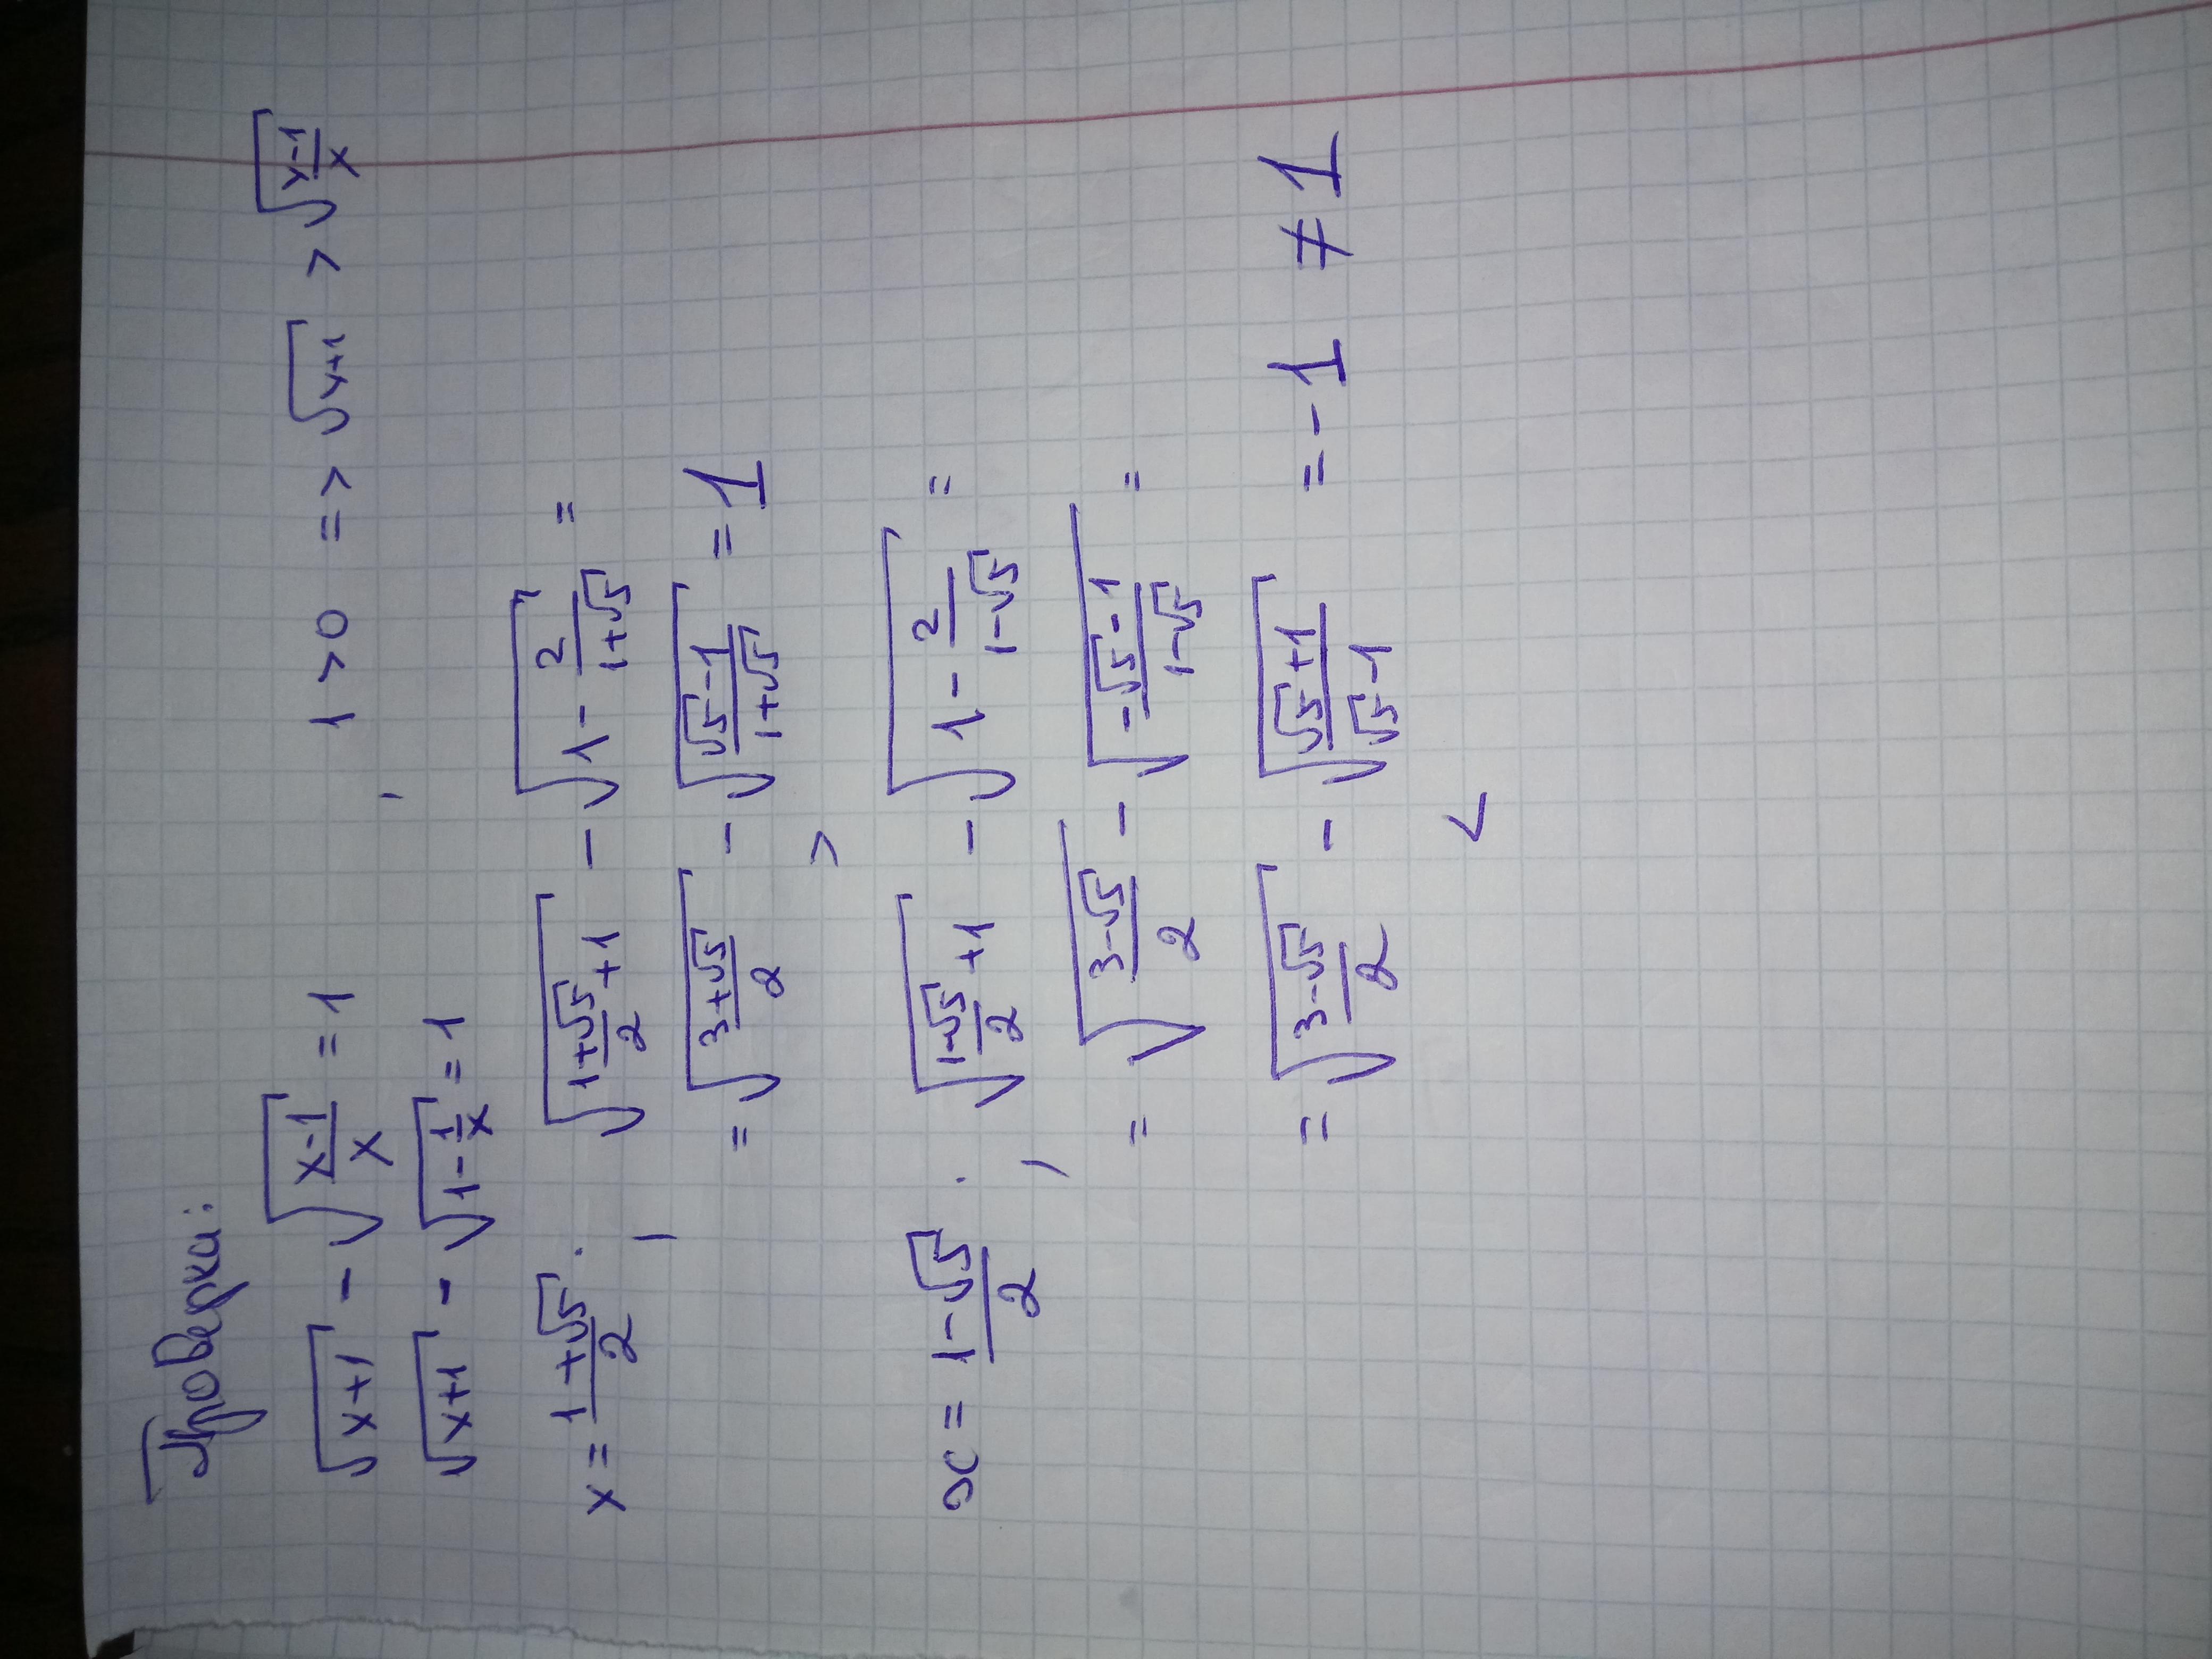 Проверка:
√(x+1) - √((x-1)/x) = 1 , 1 > 0 => √(x+1) > √((x-1)/x)
√(x+1) - √(1 - 1/x) = 1
x = (1+√5)/2 ; √((1+√5)/2 + 1) - √(1 - 2/(1+√5)) =
= √((3+√5)/2) - √((√5-1)/(1+√5)) = 1
>
x = (1-√5)/2 ; √((1-√5)/2 + 1) - √(1 - 2/(1-√5)) =
= √((3-√5)/2) - √((-√5-1)/(1-√5)) =
= √((3-√5)/2) - √((√5+1)/(√5-1)) = -1 ≠ 1
<